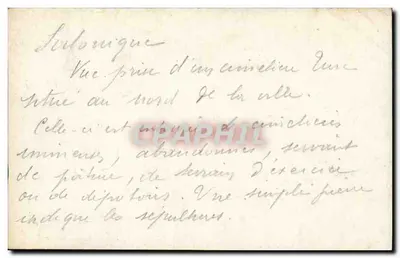 Salonique
Vue prise d'un cimetière Turc
situé au nord de la ville.
Celle-ci est de cimetières
immenses, abandonnés, servant
de pâture, de terrains d'exercice
ou de dépotoirs. Une simple pierre
indique les sépultures.
CPAPHIL